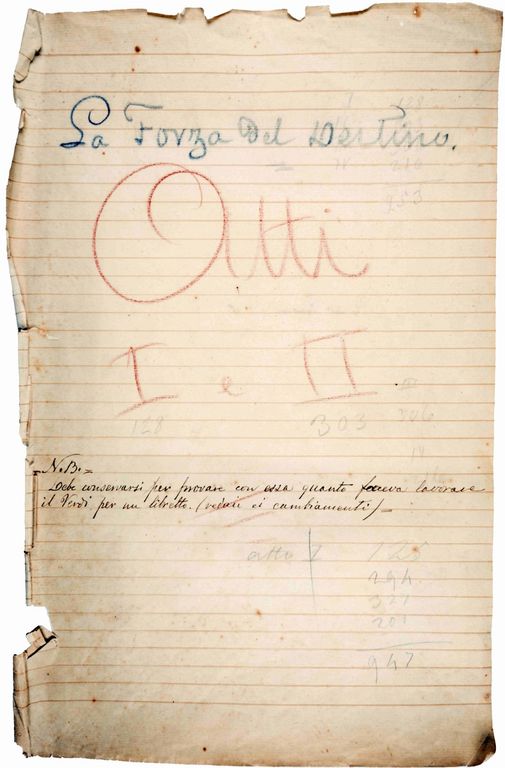 La Forza del Destino.
Atti
I e II
128 303
N.B.=
Debe conservarsi per provare con essa quanto faceva lavorare
il Verdi per un libretto. (vedere ei cambiamenti)
atto I 128
294
324
201
947